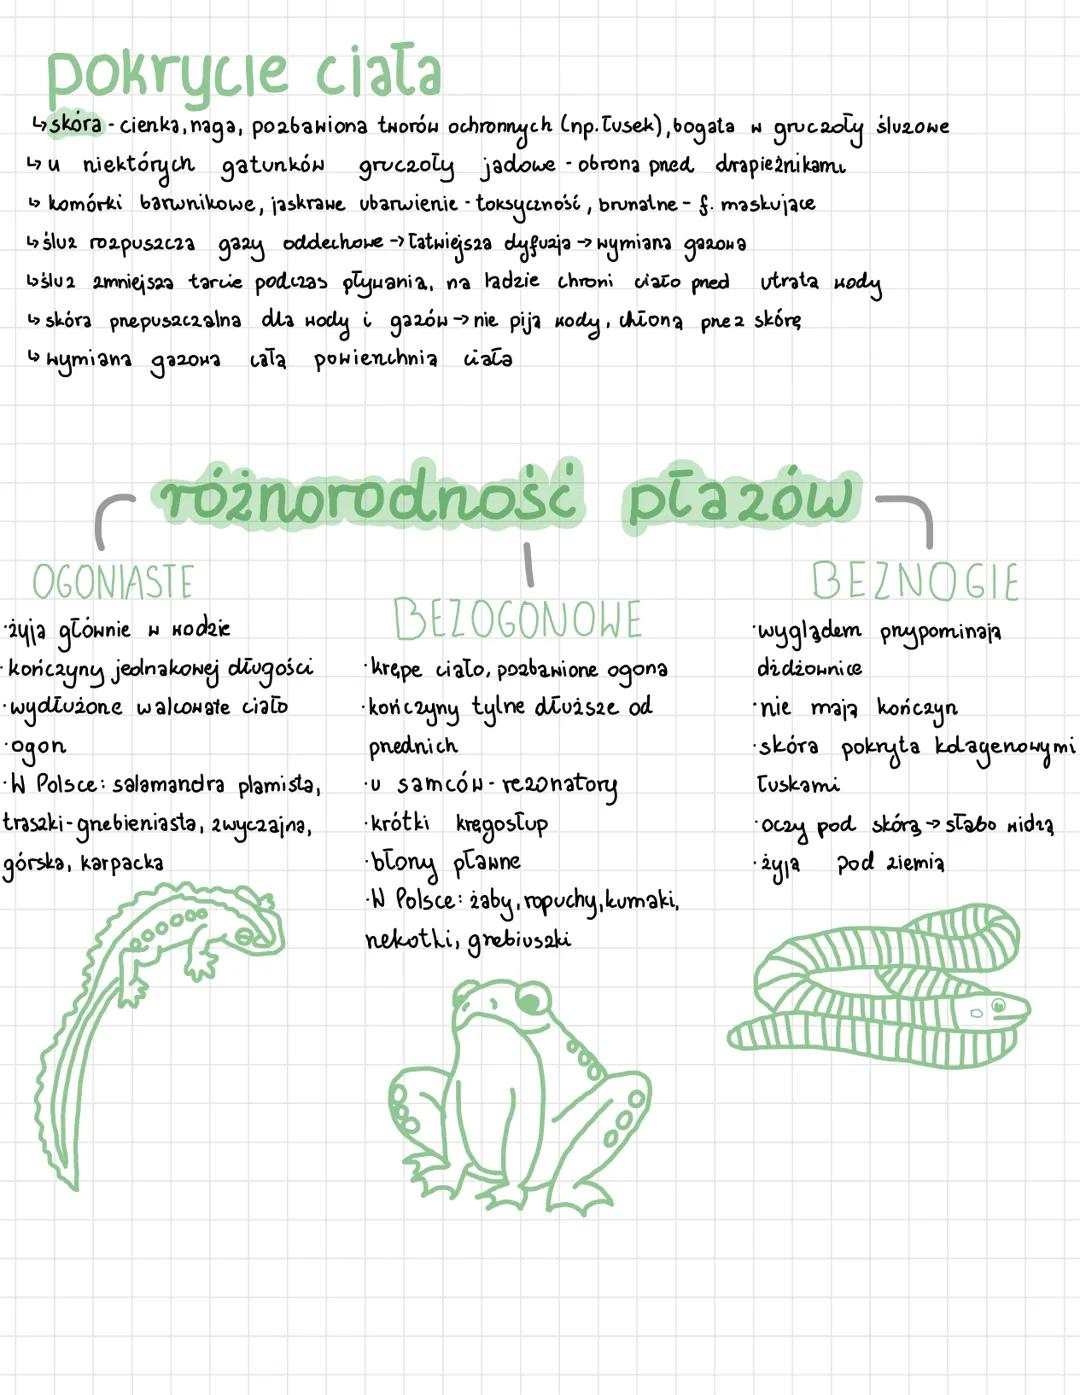 pokrycie ciała
↳ skóra - cienka, naga, pozbawiona tworów ochronnych (np. łusek), bogata w gruczoły śluzowe
↳ u niektórych gatunków gruczoły jadowe - obrona przed drapieżnikami
↳ komórki barwnikowe, jaskrawe ubarwienie - toksyczność, brunatne - f. maskujące
↳ śluz rozpuszcza gazy oddechowe → łatwiejsza dyfuzja → wymiana gazowa
↳ śluz zmniejsza tarcie podczas pływania, na lądzie chroni ciało przed utratą wody
↳ skóra przepuszczalna dla wody i gazów → nie piją wody, chłoną przez skórę
↳ wymiana gazowa całą powierzchnią ciała
różnorodność płazów
OGONIASTE
·żyją głównie w wodzie
·kończyny jednakowej długości
·wydłużone walcowate ciało
·ogon
·W Polsce: salamandra plamista,
traszki - grzebieniasta, zwyczajna,
górska, karpacka
BEZOGONOWE
·krępe ciało, pozbawione ogona
·kończyny tylne dłuższe od
przednich
·u samców - rezonatory
·krótki kręgosłup
·błony pławne
·W Polsce: żaby, ropuchy, kumaki,
rzekotki, grzebiuszki
BEZNOGIE
·wyglądem przypominają
dżdżownice
·nie mają kończyn
·skóra pokryta kolagenowymi
łuskami
·oczy pod skórą → słabo widzą
·żyją pod ziemią